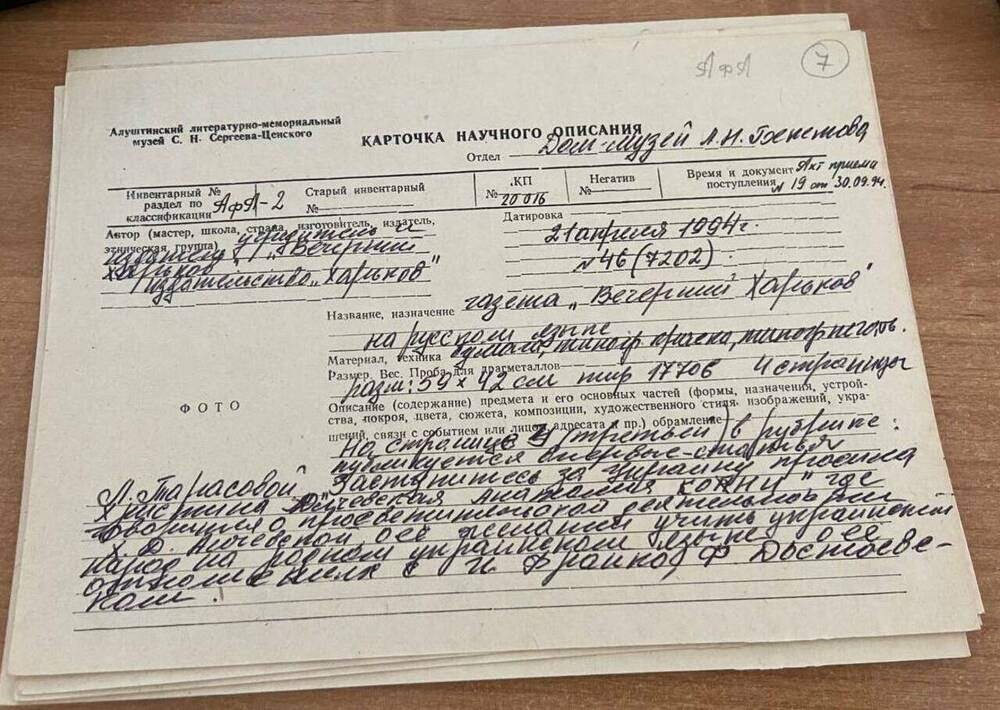 АФЛ 7
Алуштинский литературно-мемориальный
музей С. Н. Сергеева-Ценского
КАРТОЧКА НАУЧНОГО ОПИСАНИЯ
Отдел Дом-музей А.Н. Бекетова
Инвентарный №
раздел по
классификации АФЛ-2
Старый инвентарный
№
КП
№ 20016
Негатив
№
Время и документ Акт приема
поступления N 19 от 30.09.94.
Автор (мастер, школа, страна, изготовитель, издатель,
этническая группа) учредитель и
издатель "Вечерний
Харьков
издательство "Харьков"
Датировка
21 апреля 1994 г.
N 46 (7202).
Название, назначение газета "Вечерний Харьков"
на русском языке
Материал, техника бумага, типогр краска, типогр печать.
Размер. Вес. Проба для драгметаллов
разм: 59 × 42 см тир 17706 4 страницы
ФОТО
Описание (содержание) предмета и его основных частей (формы, назначения, устрой-
ства, покроя, цвета, сюжета, композиции, художественного стиля, изображений, укра-
шений, связи с событием или лицом, адресата и пр.) обрамление
На странице 3 (третьей) в рубрике:
публикуется впервые - статья
Л. Тарасовой "Заступитесь за Украину просила
Христина Алчевская Анатолия Кони" где
говорится о просветительской деятельности
Х. Д. Алчевской, её желании учить украинский
народ на родном украинском языке о её
с И. Франко, Ф. Достоевс-
ким.